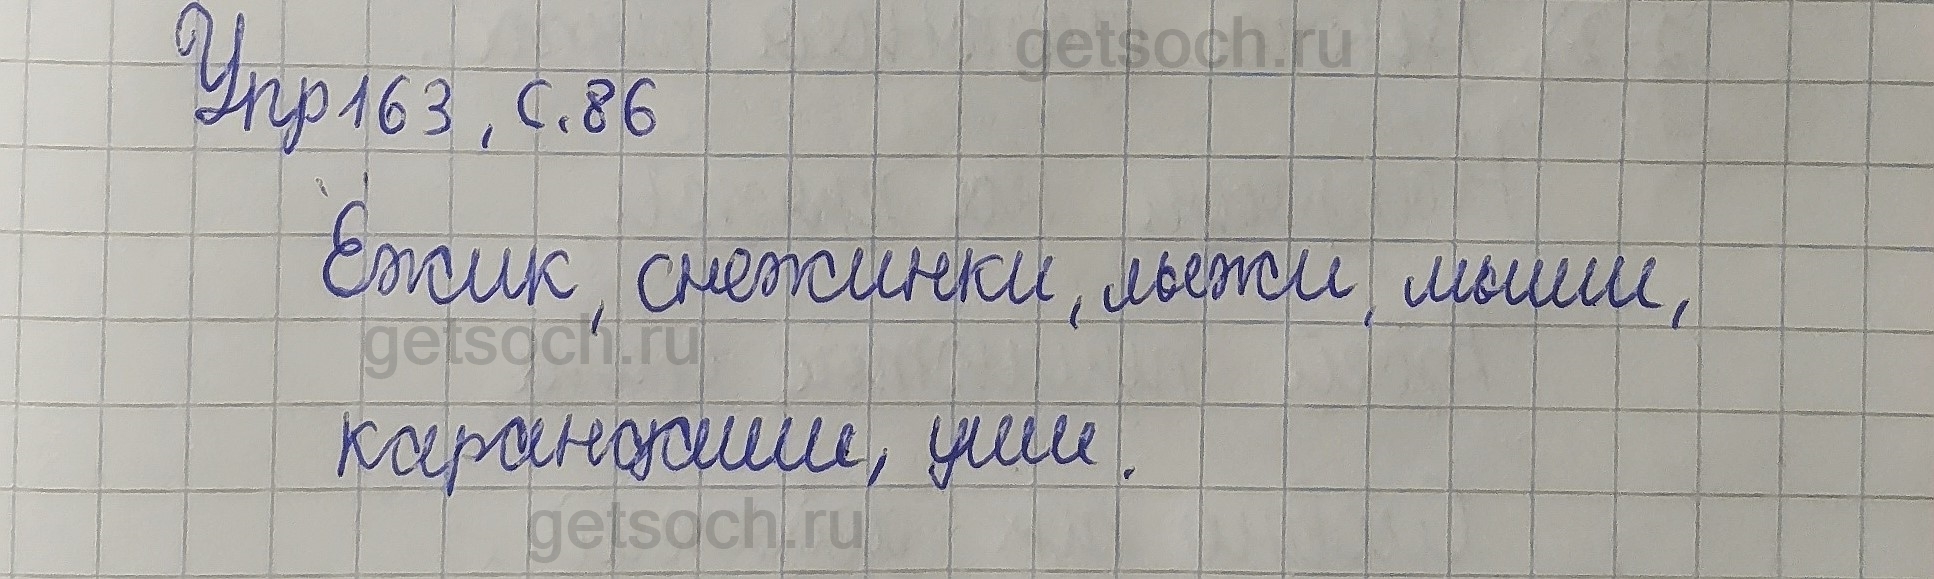 getsoch.ru
Упр 163, с. 86
Ёжик, снежинки, лыжи, мыши,
getsoch.ru
карандаши, уши.
getsoch.ru